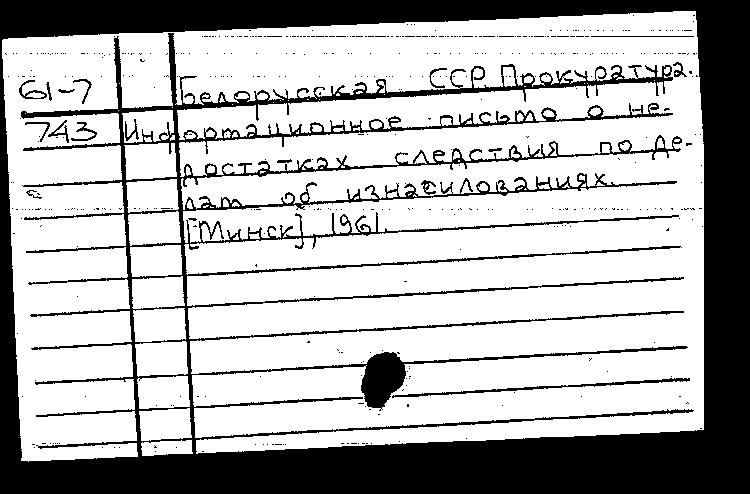 61-7 Белорусская ССР. Прокуратура.
743 Информационное письмо о не-
достатках следствия по де-
лам об изнасилованиях.
[Минск], 1961.